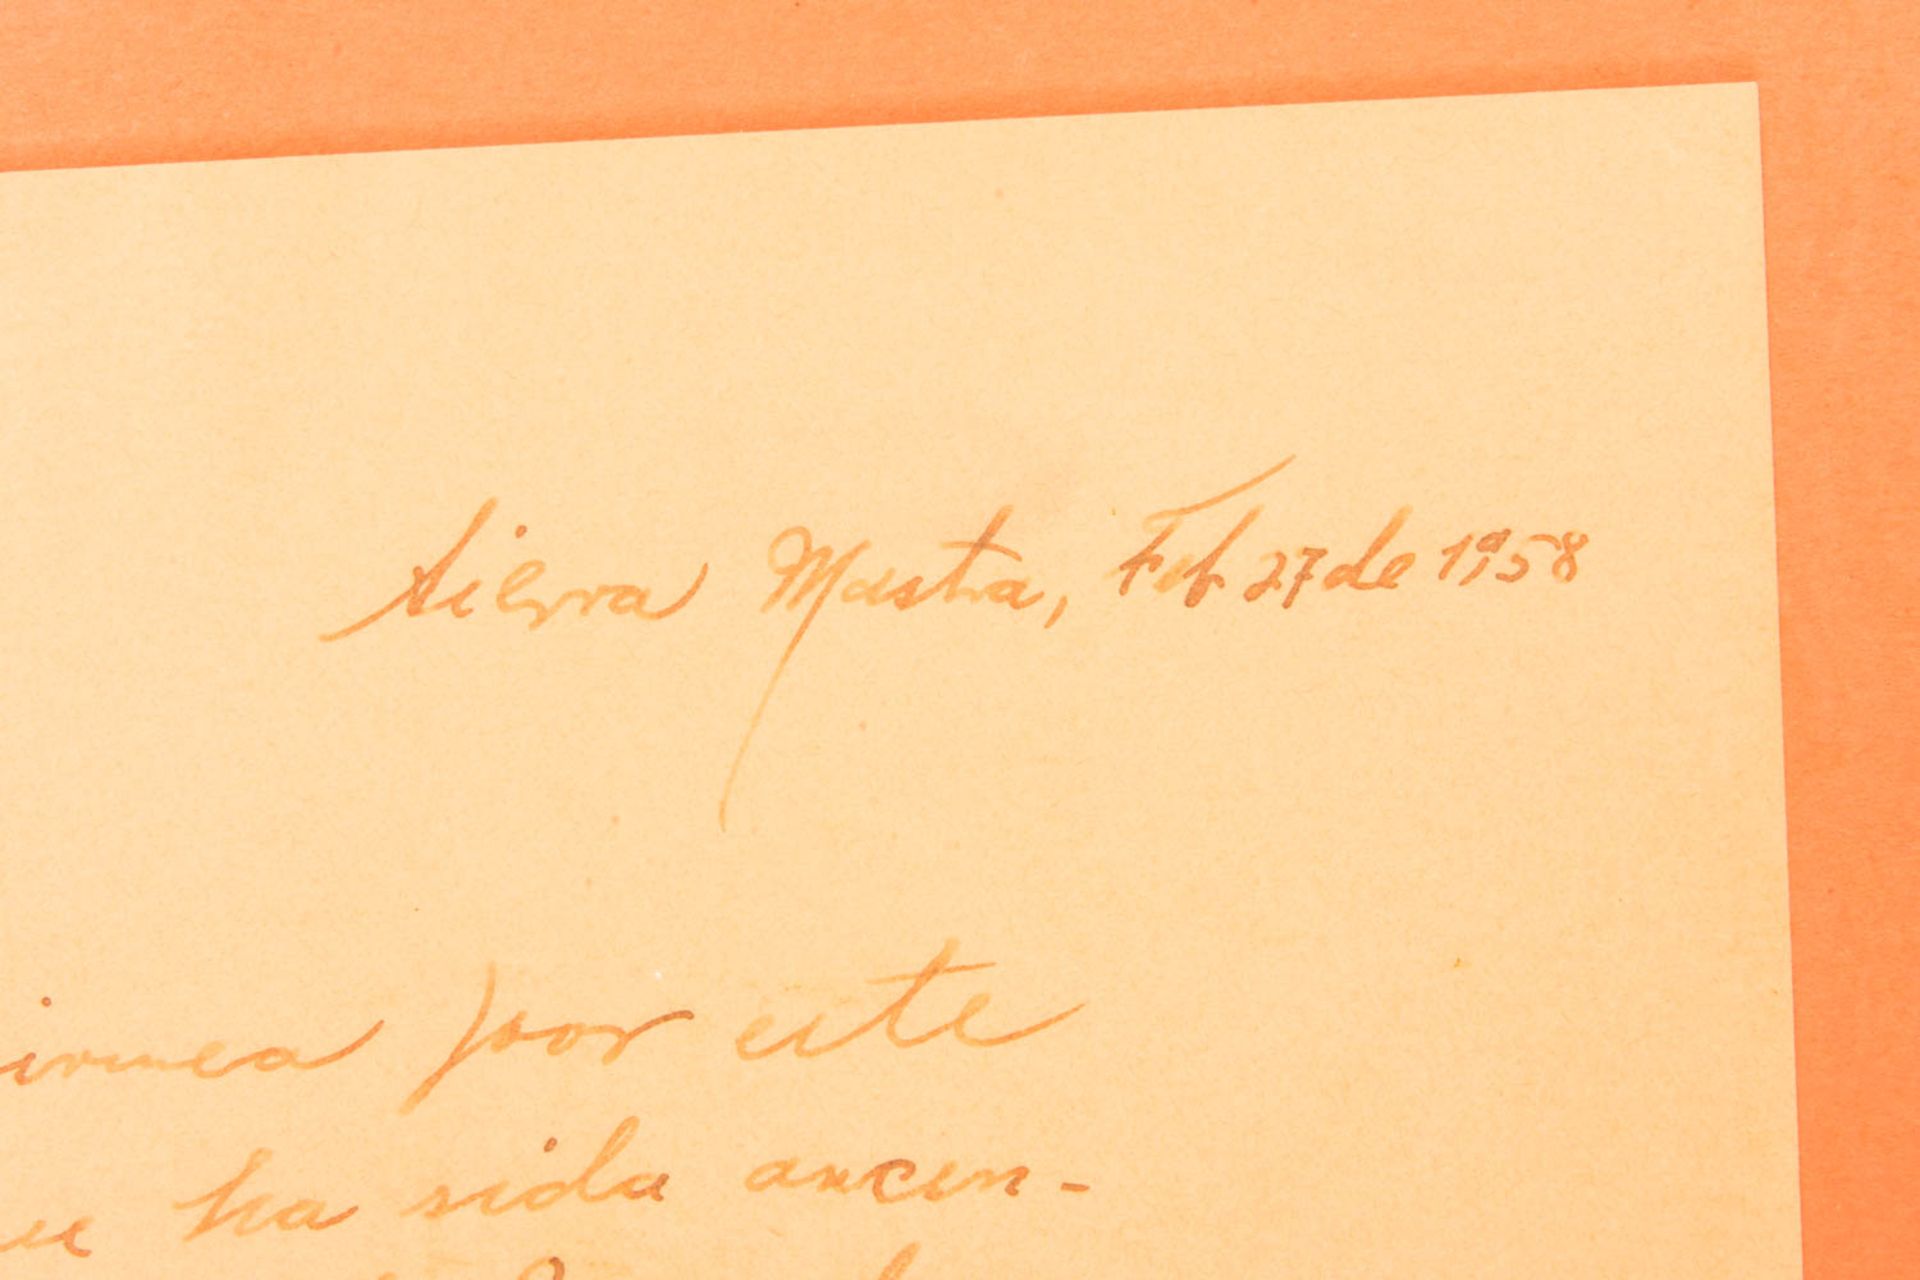 Sierra Maestra, Feb 27 de 1958
por este
ha sido ascen-